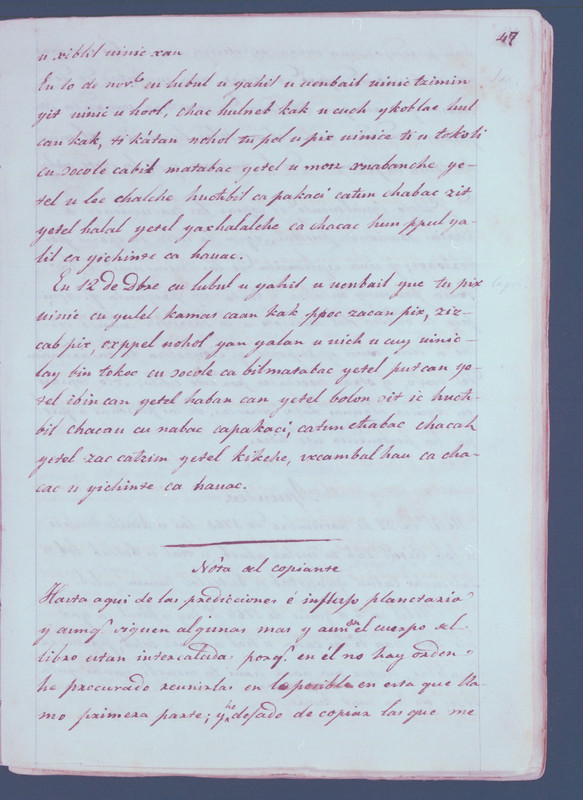 47
u xiblil uinic xan
En 10 de nov.e cu lubul u yahil u uenbail uinic tzimin
yit uinic u hool, chac hulneb kak u cuch ykoblac hul
can kak, ti kátan nohol tu pol u pix uinice ti u tokoli
cu ɔocole cabil matabac yetel u moɔ xnabanche ye-
tel u lec chalche huchbil ca pakaci catun chabac zit
yetel halal yetel yaxhalalche ca chacac hun ppul ya-
lil ca yichinte ca hauac.
En 12 de Dbre cu lubul u yahil u uenbail yuc tu pix
uinic cu yulel kamas caan kak ppoc zacan pix, ziz-
cab pix, oxppel nohol yan yalan u uich u cuy uinic-
lay bin tokoc cu ɔocole ca bilmatabac yetel put can ye-
tel ibin can yetel haban can yetel bolon ɔit ic huch-
bil chacau cu nabac capakaci, catun chabac chacah
yetel zac catzim yetel kikche, uxcambal hau ca cha-
cac u yichinte ca hauac.
Nota del copiante
Hasta aqui de las predicciones é influxo planetario
y aunq.e siguen algunas mas y aun en el cuerpo del
libro estan intercalada porq.e en él no hay orden
he procurado reunirlas en lo posible en esta que lla-
mo primera parte; y he dejado de copiar las que me